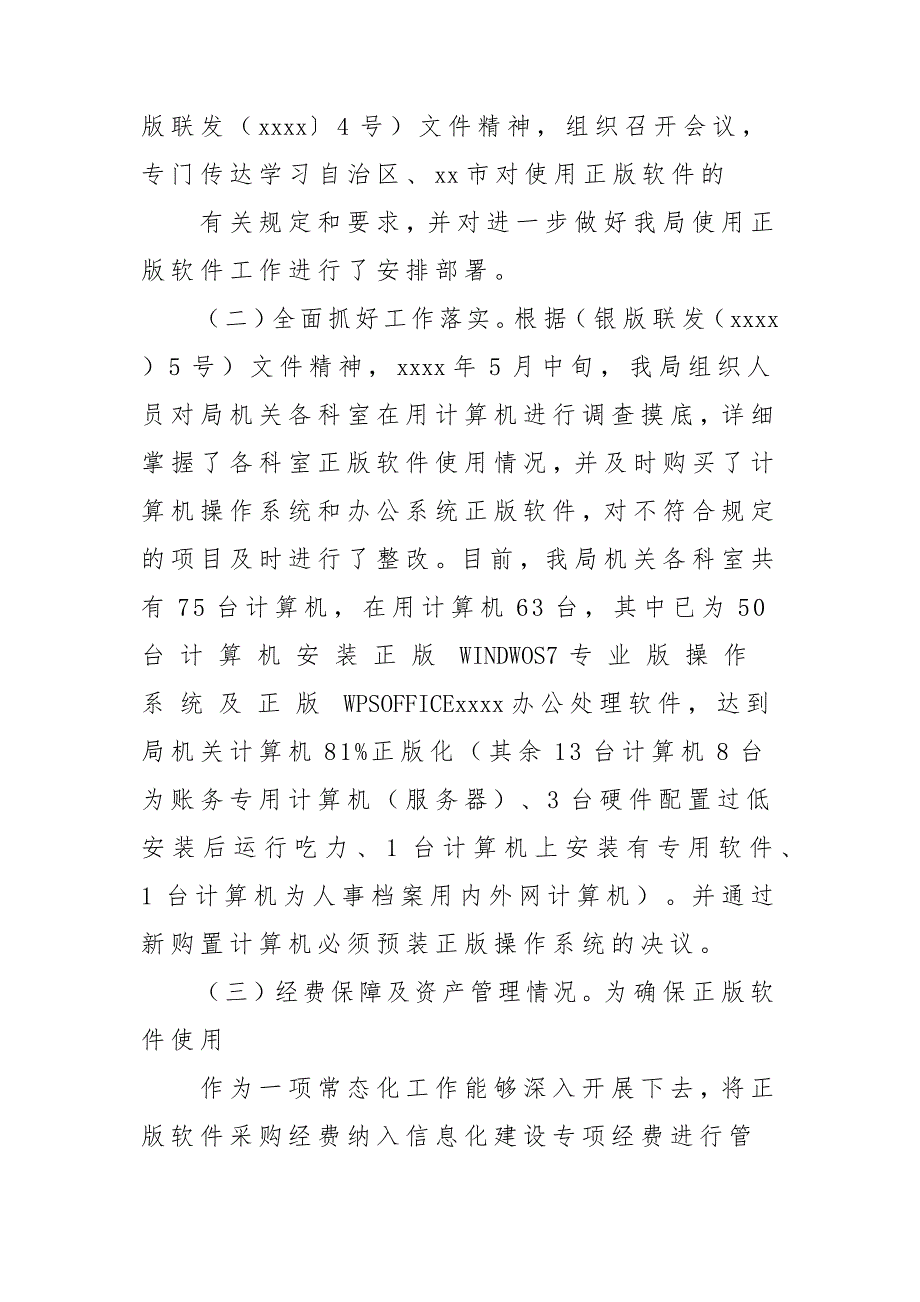 版联发（xxxx〕4号）文件精神，组织召开会议，
专门传达学习自治区、xx市对使用正版软件的
有关规定和要求，并对进一步做好我局使用正
版软件工作进行了安排部署。
（二）全面抓好工作落实。根据（银版联发（xxxx
）5号）文件精神，xxxx年5月中旬，我局组织人
员对局机关各科室在用计算机进行调查摸底，详细
掌握了各科室正版软件使用情况，并及时购买了计
算机操作系统和办公系统正版软件，对不符合规定
的项目及时进行了整改。目前，我局机关各科室共
有75台计算机，在用计算机63台，其中已为50
台计算机安装正版WINDWOS7专业版操作
系统及正版WPSOFFICExxxx办公处理软件，达到
局机关计算机81%正版化（其余13台计算机8台
为账务专用计算机（服务器）、3台硬件配置过低
安装后运行吃力、1台计算机上安装有专用软件、
1台计算机为人事档案用内外网计算机）。并通过
新购置计算机必须预装正版操作系统的决议。
（三）经费保障及资产管理情况。为确保正版软
件使用
作为一项常态化工作能够深入开展下去，将正
版软件采购经费纳入信息化建设专项经费进行管